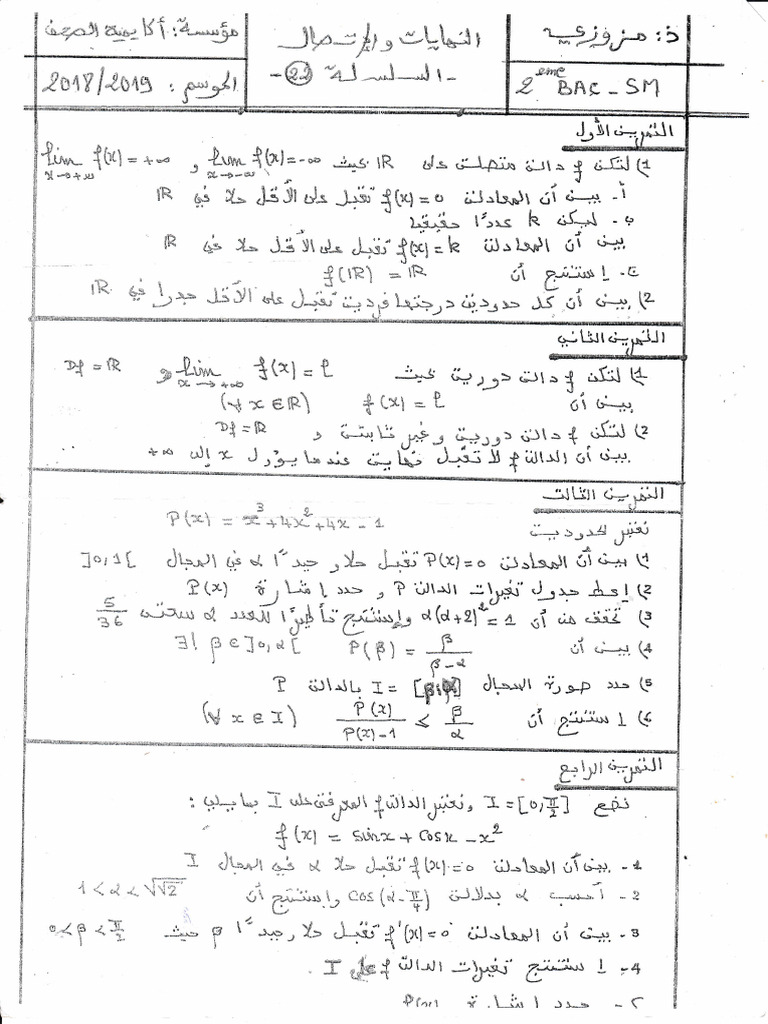 ذ: مزوزي
2ème BAC - SM
النهايات والإتصال
- السلسلة (22) -
مؤسسة: أكاديمية الصحف
الموسم: 2018/2019
التمرين الأول
1) لتكن f دالة متصلة على IR بحيث lim f(x) = -∞ x→-∞ و lim f(x) = +∞ x→+∞
أ- بين أن المعادلة f(x) = 0 تقبل على الأقل حلا في IR
ب- ليكن k عددا حقيقيا
بين أن المعادلة f(x) = k تقبل على الأقل حلا في IR
ج- إستنتج أن f(IR) = IR
2) بين أن كل حدودية درجتها فردية تقبل على الأقل جدرا في IR
التمرين الثاني
1) لتكن f دالة دورية بحيث lim f(x) = l x→+∞ و Df = IR
بين أن f(x) = l (∀ x ∈ IR)
2) لتكن f دالة دورية وغير ثابتة و Df = IR
بين أن الدالة f لا تقبل نهاية عندما يؤول x إلى +∞
التمرين الثالث
نعتبر الحدودية P(x) = x³ + 4x² + 4x - 1
1) بين أن المعادلة P(x) = 0 تقبل حلا وحيدًا α في المجال ]0,1[
2) إعط جدول تغيرات الدالة P و حدد إشارة P(x)
3) تحقق من أن α(α+2)² = 1 وإستنتج تأطيرًا للعدد α سعته 5/36
4) بين أن ∃! β ∈ ]0,α[ P(β) = β/(β-α)
5) حدد صورة المجال I = [β,α] بالدالة P
6) إستنتج أن P(x)/(P(x)-1) ≤ β/α (∀ x ∈ I)
التمرين الرابع
نضع I = [0,π/2] ونعتبر الدالة f المعرفة على I بمايلي:
f(x) = sinx + cosx - x²
1- بين أن المعادلة f(x) = 0 تقبل حلا α في المجال I
2- أحسب cos(α-π/4) بدلالة α وإستنتج أن 1<α<√√2
3- بين أن المعادلة f'(x) = 0 تقبل حلا وحيدًا β حيث 0<β<π/2
4- إستنتج تغيرات الدالة f على I.
حدد إشارة